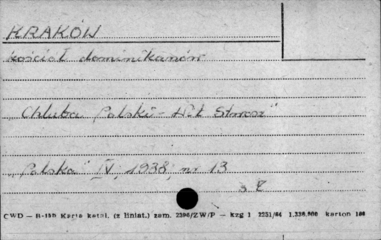 KRAKÓW
kościół dominikanów
"Chluba Polski - Wit Stwosz"
"Polska" IV, 1938, nr 13
s. 8
CWD — B-189 Karta katal. (z liniat.) zam. 2296/ZW/P — kzg 1 2251/64 1.336.000 karton 160